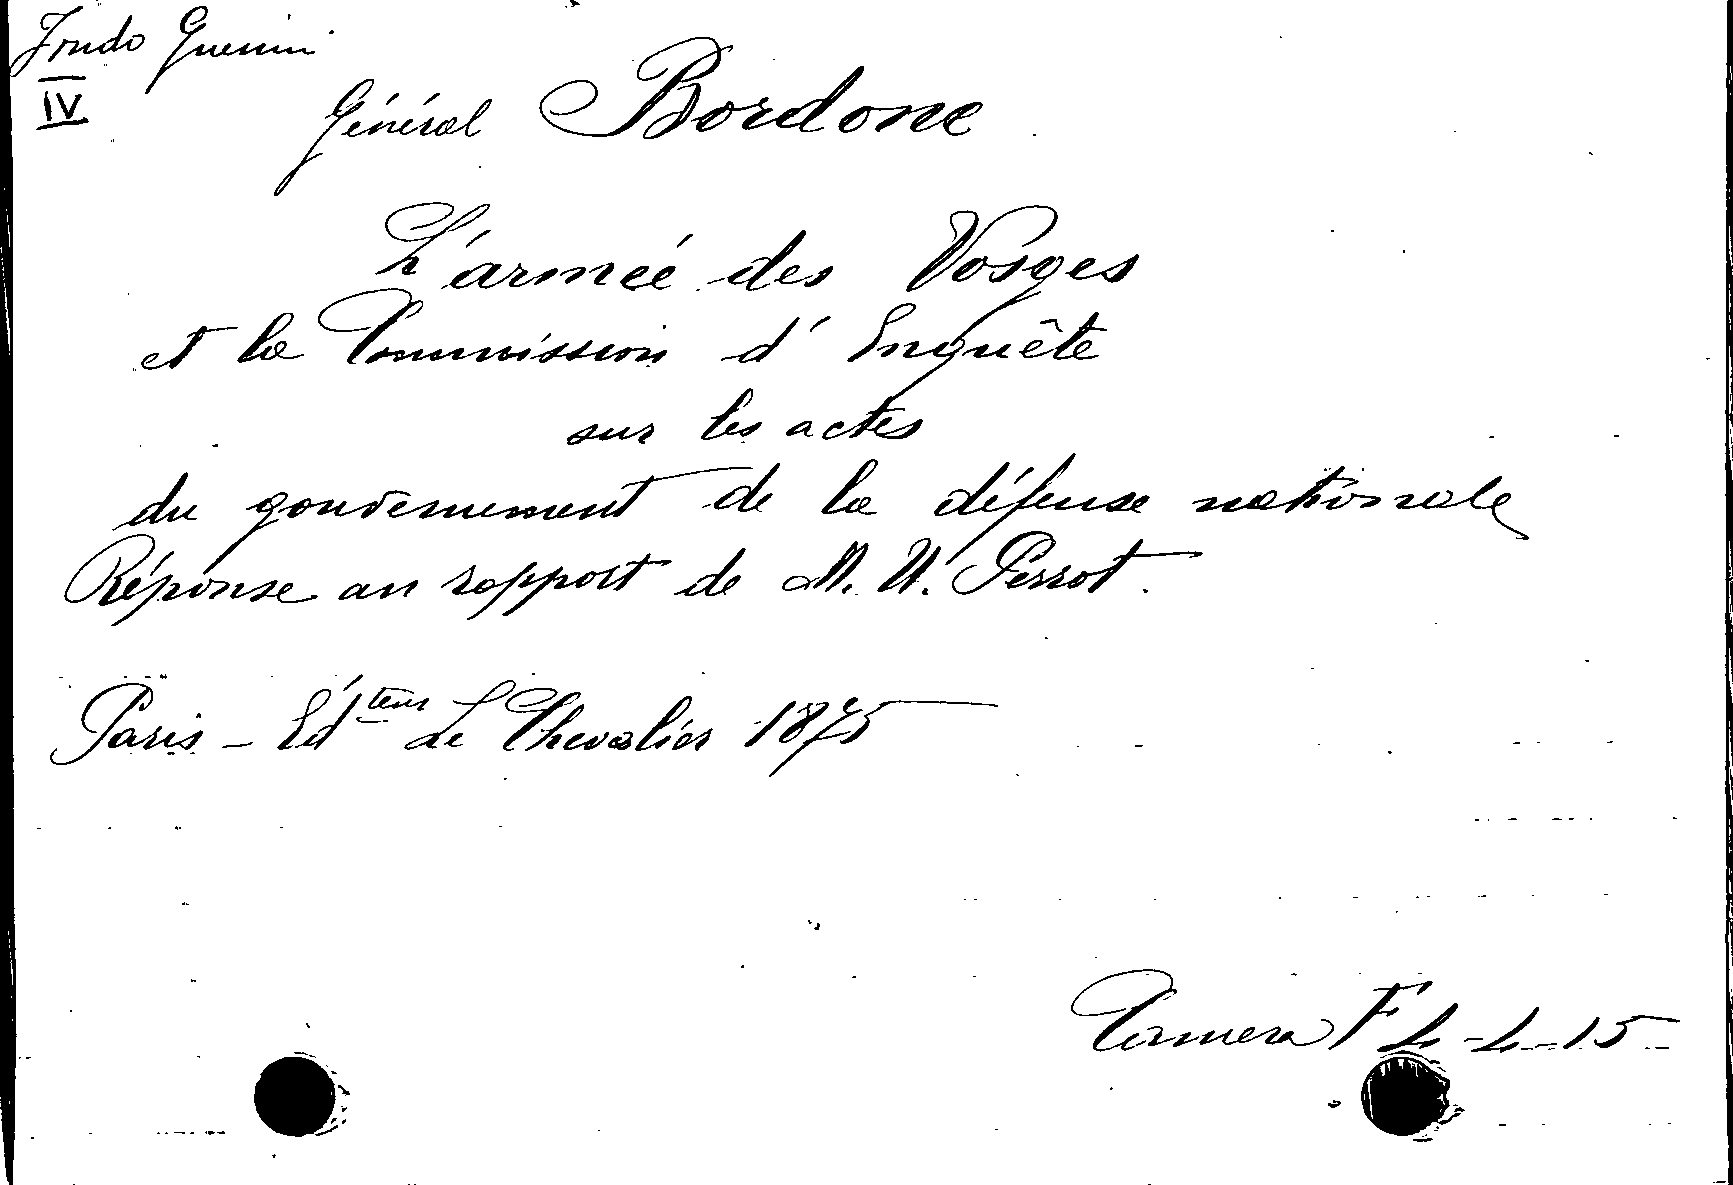 Fondo Guerrini
IV
Général Bordone
L'armée des Vosges
et la Commission d'Enquête
sur les actes
du gouvernement de la défense nationale
Réponse au rapport de M. U. Perrot.
Paris - Edteur Le Chevalier 1875
Camera F 4-4-15